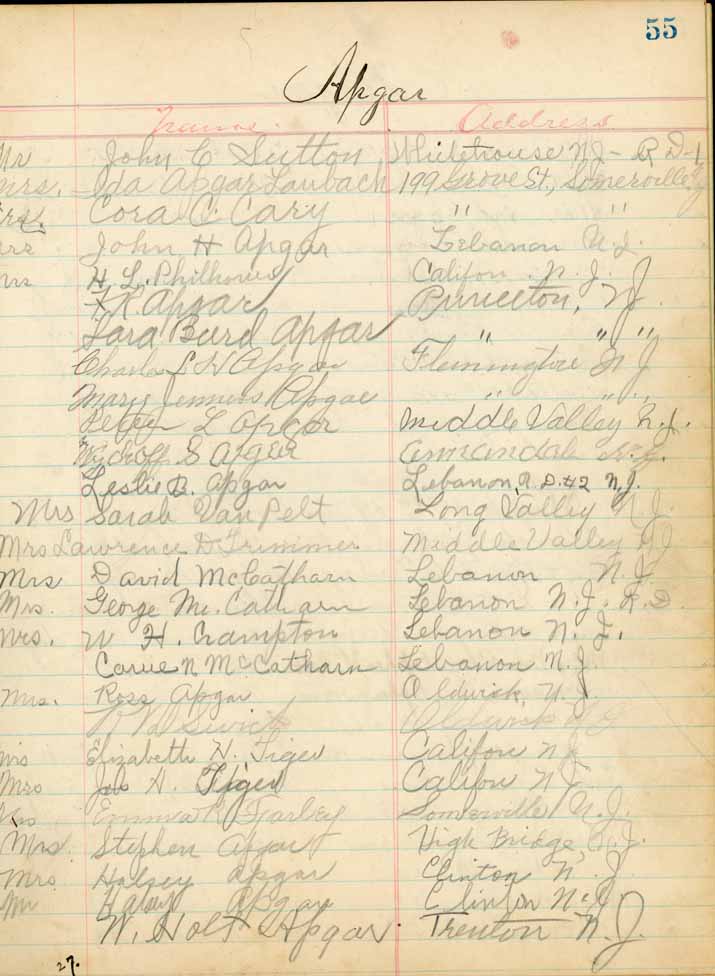 55
Apgar
Name. Address
Mr John C Sutton Whitehouse N.J- R D-1
Mrs. Ida Apgar Laubach 199 Grove St., Somerville
Mrs. Cora C. Cary " "
John H Apgar Lebanon N.J.
Mrs H. L. Philhower Califon N. J.
F. R. Apgar Princeton, NJ
Sara Burd Apgar " " "
Charles L W Apgar Flemington N J
Mary Jemmens Apgar " " "
Peter L Apgar Middle Valley N.J.
Wycroff S Apger Annandale N.J.
Leslie B. Apgar Lebanon, R.D. #2 N.J.
Mrs Sarah Van Pelt Long Valley N.J.
Mrs Lawrence D Trimmer Middle Valley NJ
Mrs David McCatharn Lebanon N.J.
Mrs. George Mc. Catharn Lebanon N.J. R.D.
Mrs. W H. Crampton Lebanon N. J.
Carrie N McCatharn Lebanon N.J.
Mrs. Ross Apgar Oldwick, N.J.
Oldwick NJ
Mrs Elizabeth N. Tiger Califon N J
Mrs Jas H. Tiger Califon N J
Mrs Emma R Farley Somerville N.J.
Mrs. Stephen Apgar High Bridge N.J.
Mrs Halsey Apgar Clinton N. J.
Mr Halsey Apgar Clinton N.J.
W. Holt Apgar. Trenton N.J.
27.